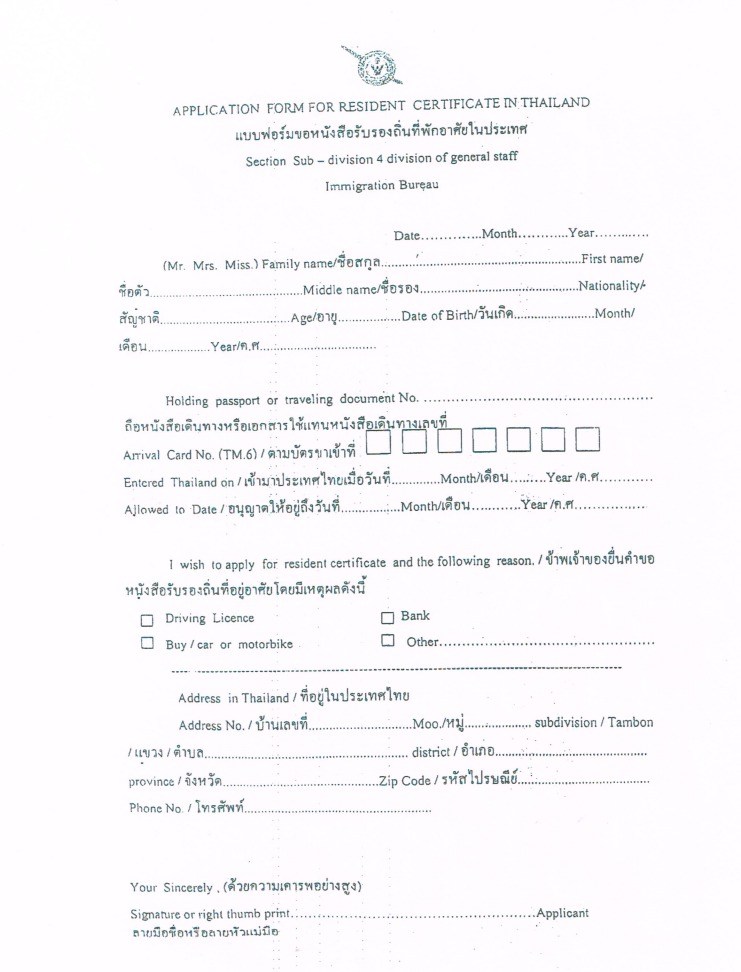 APPLICATION FORM FOR RESIDENT CERTIFICATE IN THAILAND
แบบฟอร์มขอหนังสือรับรองถิ่นที่พักอาศัยในประเทศ
Section Sub – division 4 division of general staff
Immigration Bureau
Date..............Month............Year..............
(Mr. Mrs. Miss.) Family name/ชื่อสกุล..................................................First name/
ชื่อตัว.......................................Middle name/ชื่อรอง.........................................Nationality/
สัญชาติ..................................Age/อายุ................Date of Birth/วันเกิด.....................Month/
เดือน................Year/ค.ศ..............................
Holding passport or traveling document No. .......................................................
ถือหนังสือเดินทางหรือเอกสารใช้แทนหนังสือเดินทางเลขที่
Arrival Card No. (TM.6) / ตามบัตรขาเข้าที่
Entered Thailand on / เข้ามาประเทศไทยเมื่อวันที่.............Month/เดือน.........Year /ค.ศ.............
Allowed to Date / อนุญาตให้อยู่ถึงวันที่...............Month/เดือน............Year /ค.ศ..................
I wish to apply for resident certificate and the following reason. / ข้าพเจ้าของยื่นคำขอ
หนังสือรับรองถิ่นที่อยู่อาศัยโดยมีเหตุผลดังนี้
☐ Driving Licence ☐ Bank
☐ Buy / car or motorbike ☐ Other....................................................
--------------------------------------------------------------------------------
Address in Thailand / ที่อยู่ในประเทศไทย
Address No. / บ้านเลขที่..........................Moo./หมู่.................. subdivision / Tambon
/ แขวง / ตำบล.................................................... district / อำเภอ.......................................
province / จังหวัด........................................Zip Code / รหัสไปรษณีย์..................................
Phone No. / โทรศัพท์................................................
Your Sincerely , (ด้วยความเคารพอย่างสูง)
Signature or right thumb print..............................................................Applicant
ลายมือชื่อหรือลายหัวแม่มือ